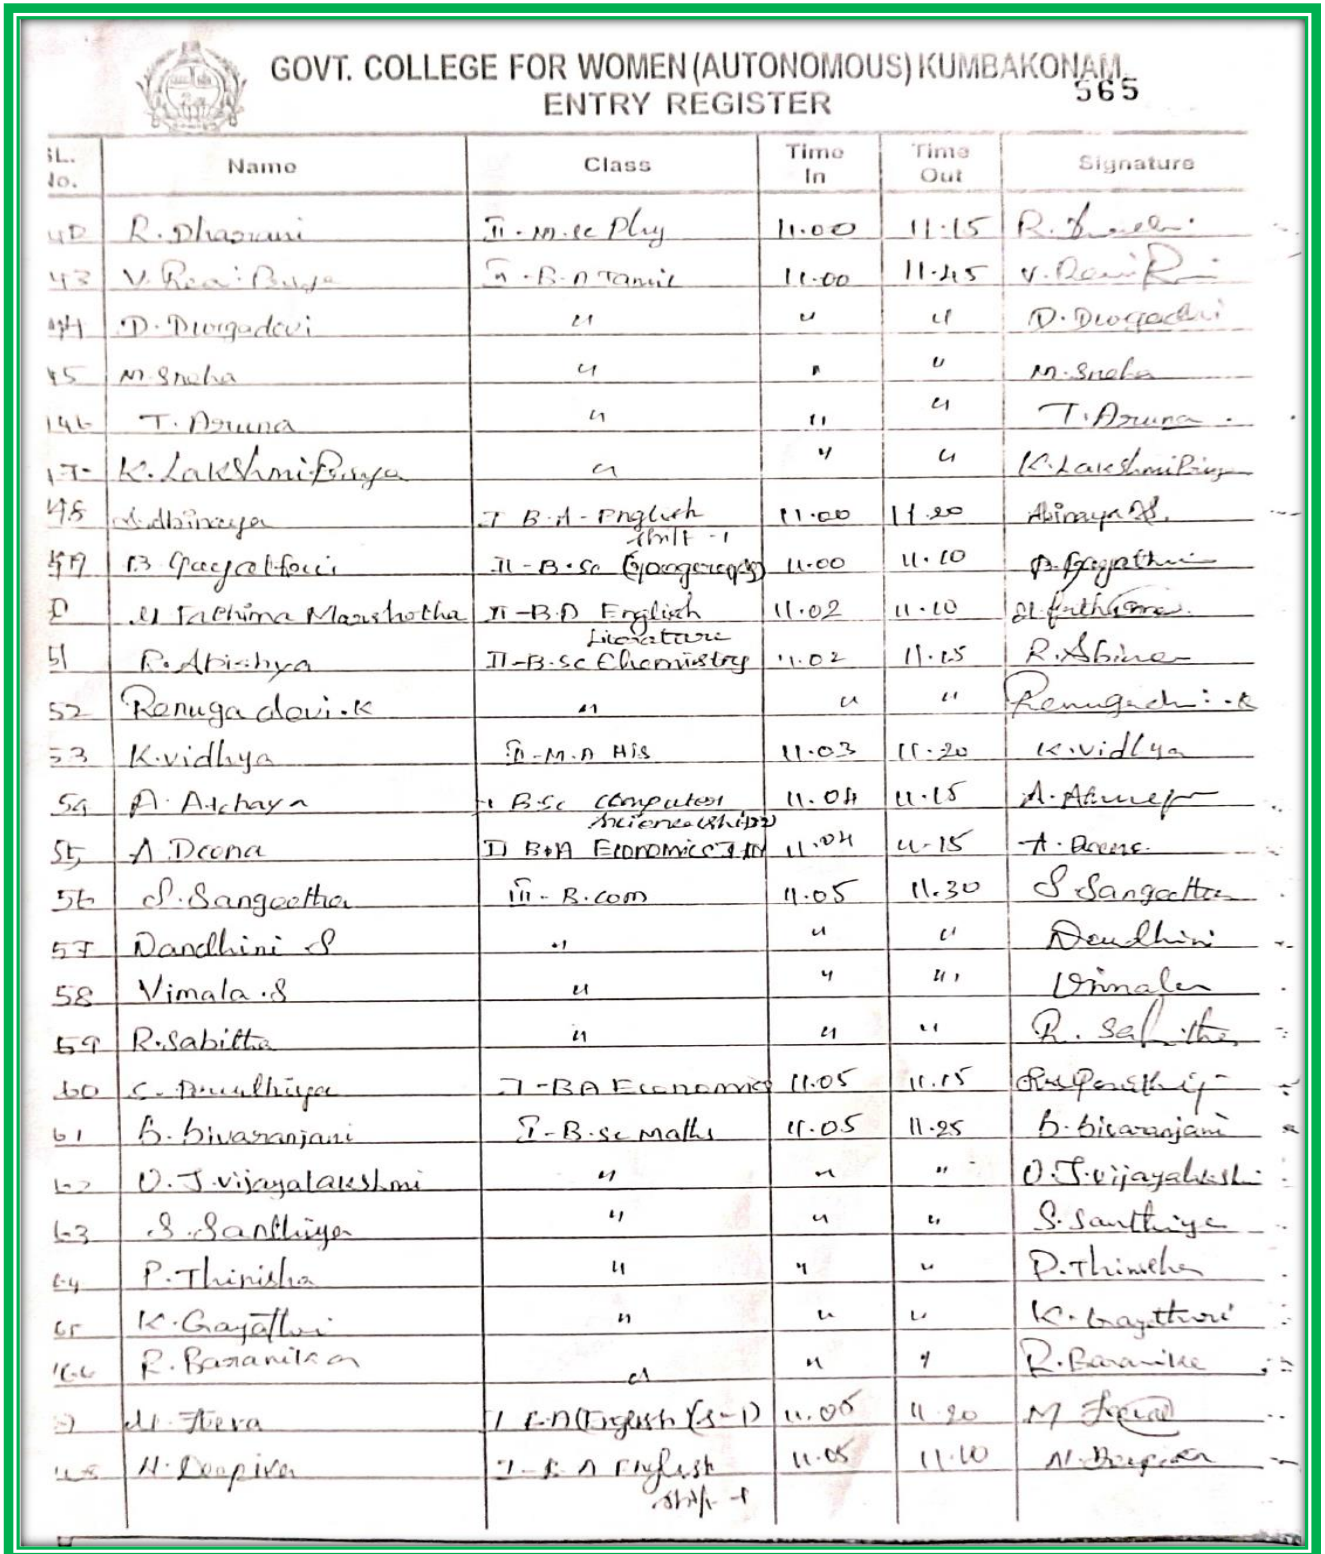 GOVT. COLLEGE FOR WOMEN (AUTONOMOUS) KUMBAKONAM.
565
ENTRY REGISTER
SL. No. Name Class Time In Time Out Signature
R. Dharani II - M.sc Phy 11.00 11.15 R.
43 V. II - B.A Tamil 11.00 11.45 V.
44 D. Durgadevi " " " D. Durgadevi
45 M. Sneha " " " M. Sneha
146 T. Aruna " " " T. Aruna
K. Lakshmi Priya " " " K. Lakshmi Priya
48 Abinaya I B.A - English 11.00 11.20 Abinaya
Shift - 1
49 B. Gayathri II - B.sc 11.00 11.10 B. Gayathri
Fathima II - B.A English 11.02 11.10
Literature
51 R. II - B.sc Chemistry 11.02 11.15 R.
52 Renuga devi.K " " " Renugadevi.K
53 K. vidhya II - M.A His 11.03 11.20 K. vidhya
54 A. Atchaya I B.Sc Computer 11.04 11.15 A.
Science
55 A Deena II B.A Economics 11.04 11.15 A. Deena
56 S. Sangeetha III - B.com 11.05 11.30 S Sangeetha
57 Nandhini S " " " Nandhini
58 Vimala .S " " " Vimala
59 R. Sabitha " " " R. Sabitha
60 I - BA Economics 11.05 11.15
61 I - B.sc Maths 11.05 11.25
62 O.J. vijayalakshmi " " " O.J. vijayalakshmi
63 S. Santhiya " " " S. Santhiya
64 P. Thinisha " " " P. Thinisha
65 K. Gayathri " " " K. Gayathri
R. Baranika " " " R. Baranika
M. I B.A (English) (S-1) 11.05 11.20 M
N. Deepika I - B.A English 11.05 11.10 N. Deepika
Shift - 1